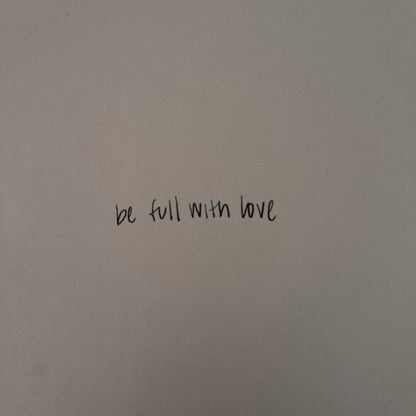 be full with love